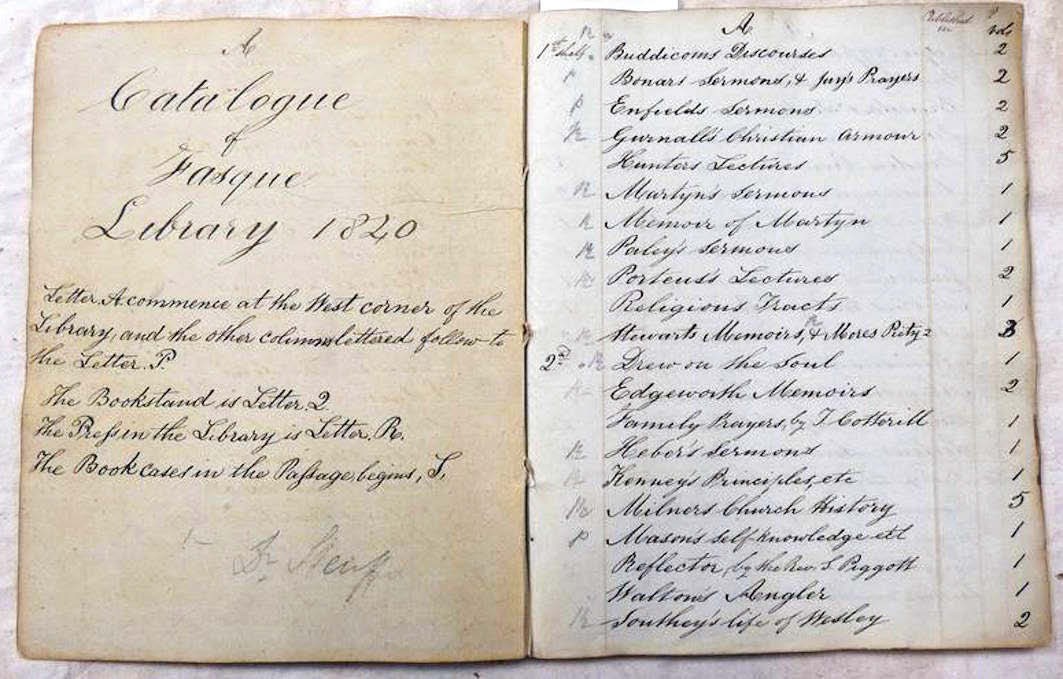 A
Catalogue
of
Fasque
Library 1820
Letter A commence at the West corner of the
Library, and the other columns lettered follow to
the Letter. P.
The Bookstand is Letter, Q
The Press in the Library is Letter, R.
The Book cases in the Passage begins, S,
A Published in vols
1st shelf Buddicoms Discourses 2
p Bonars Sermons, & Jay's Prayers 2
p Enfields Sermons 2
R Gurnall's Christian Armour 2
Hunters Lectures 5
R Martyn's Sermons 1
R Memoir of Martyn 1
R Paley's Sermons 1
R Porteus's Lectures 2
Religious Tracts 1
R Stewarts Memoirs, & Mores Piety 2
2d R Drew on the Soul 1
R Edgeworth Memoirs 2
Family Prayers, by T. Cotterill 1
R Heber's Sermons 1
R Kenney's Principles, etc 1
R Milners Church History 5
p Masons Self-knowledge etc 1
Reflector, by the Rev. S. Piggott 1
Waltons Angler 1
R Southey's life of Wesley 2